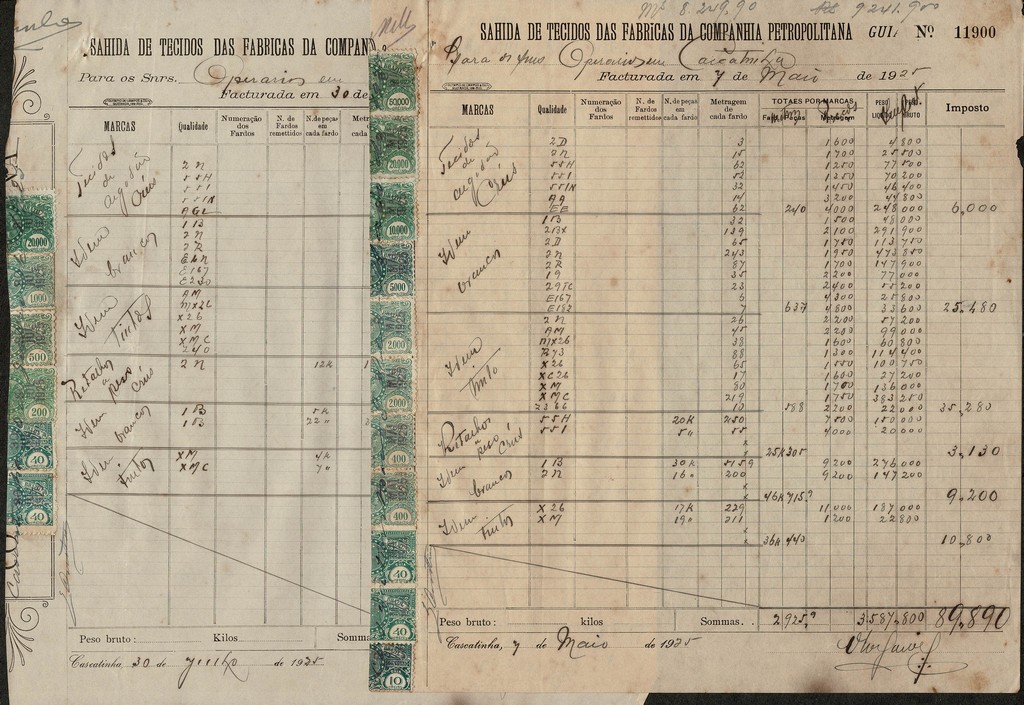 SAHIDA DE TECIDOS DAS FABRICAS DA COMPAN
Para os Snrs. Operarios em
Facturada em 30 de
MARCAS Qualidade Numeração dos Fardos N. de Fardos remettidos N. de peças em cada fardo Metr cada
Tecidos de algodão Crús
2 N
55H
551
551N
AGL
Idem brancos
1B
2N
2R
E6N
E167
E230
Idem tintos
AM
MX26
X26
XM
XMC
240
Retalhos a peso Crús
2N 12k
Idem brancos
1B 5k
1B 22 "
Idem tintos
XM 4k
XMC 7 "
Peso bruto: Kilos Somma
Cascatinha, 30 de Junho de 1925
20.000
1000
500
200
40
40
50,000
20,000
10,000
5000
2,000
2000
400
400
40
40
10
8.249.90
9241.900
SAHIDA DE TECIDOS DAS FABRICAS DA COMPANHIA PETROPOLITANA GUIA Nº 11900
Para os Snrs Operarios em Cascatinha
Facturada em 7 de Maio de 1925
MARCAS Qualidade Numeração dos Fardos N. de Fardos remettidos N. de peças em cada fardo Metragem de cada fardo TOTAES POR MARCAS PESO LIQUIDO BRUTO Imposto
Tecidos de algodão Crús
2D 3 1600 4.800
2N 15 1700 25.500
55H 62 1250 77.500
551 52 1350 70.200
551N 32 1450 46.400
AG 14 3200 44.800
EE 62 240 4000 248.000 6,000
Idem brancos
1B 32 1500 48.000
2BX 139 2100 291.900
2D 65 1750 113.750
2N 243 1950 473.850
2R 87 1700 147.900
19 35 2200 77.000
29FC 23 2400 55.200
E167 6 4300 25.800
E182 7 637 4800 33.600 25,480
Idem tinto
2N 26 2200 57.200
AM 45 2200 99.000
MX26 38 1600 60.800
B73 88 1300 114.400
X26 65 1550 100.750
XC26 17 1600 27.200
XM 80 1700 136.000
XMC 219 1750 383.250
2366 10 588 2200 22.000 35,280
Retalhos a peso Crús
55H 20k 250 7500 150.000
551 5 " 55 4000 20.000
25k 305 3,130
Idem brancos
1B 30k 9200 276.000
2N 16 " 200 9200 147.200
46k 715 9.200
Idem tintos
X26 17k 229 11000 187.000
XM 19 " 211 1200 22.800
36k 440 10,800
Peso bruto: kilos Sommas. 2925 3.587.800 89,890
Cascatinha, 7 de Maio de 1925